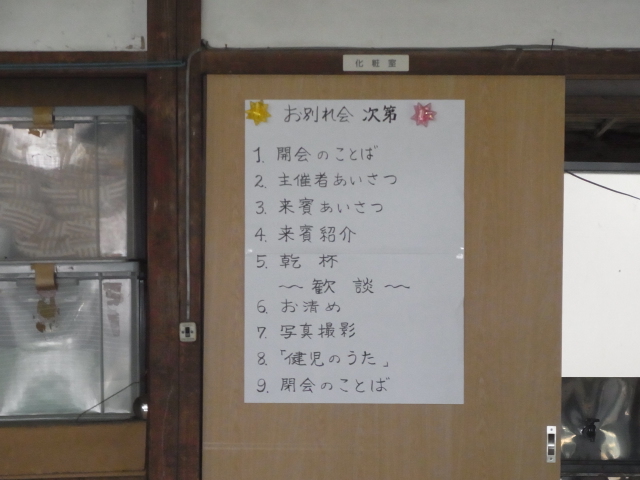 化粧室
お別れ会 次第
1. 開会のことば
2. 主催者あいさつ
3. 来賓あいさつ
4. 来賓紹介
5. 乾杯
〜 歓談 〜
6. お清め
7. 写真撮影
8. 「健児のうた」
9. 閉会のことば